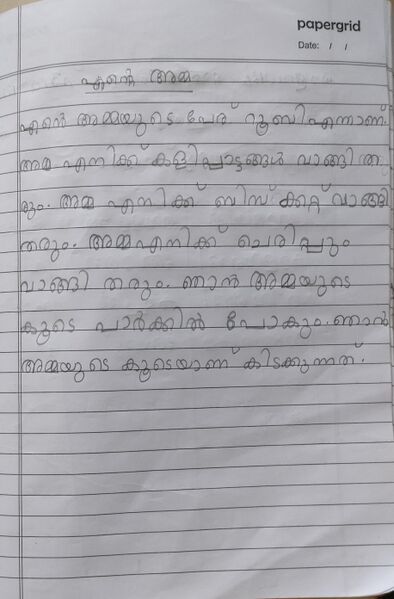 papergrid
Date: / /
എന്റെ അമ്മ
എന്റെ അമ്മയുടെ പേര് റൂബി എന്നാണ്.
അമ്മ എനിക്ക് കളിപ്പാട്ടങ്ങൾ വാങ്ങി ത
രും. അമ്മ എനിക്ക് ബിസ്കറ്റ് വാങ്ങി
തരും. അമ്മ എനിക്ക് ചെരിപ്പും
വാങ്ങി തരും. ഞാൻ അമ്മയുടെ
കൂടെ പാർക്കിൽ പോകും. ഞാൻ
അമ്മയുടെ കൂടെയാണ് കിടക്കുന്നത്.